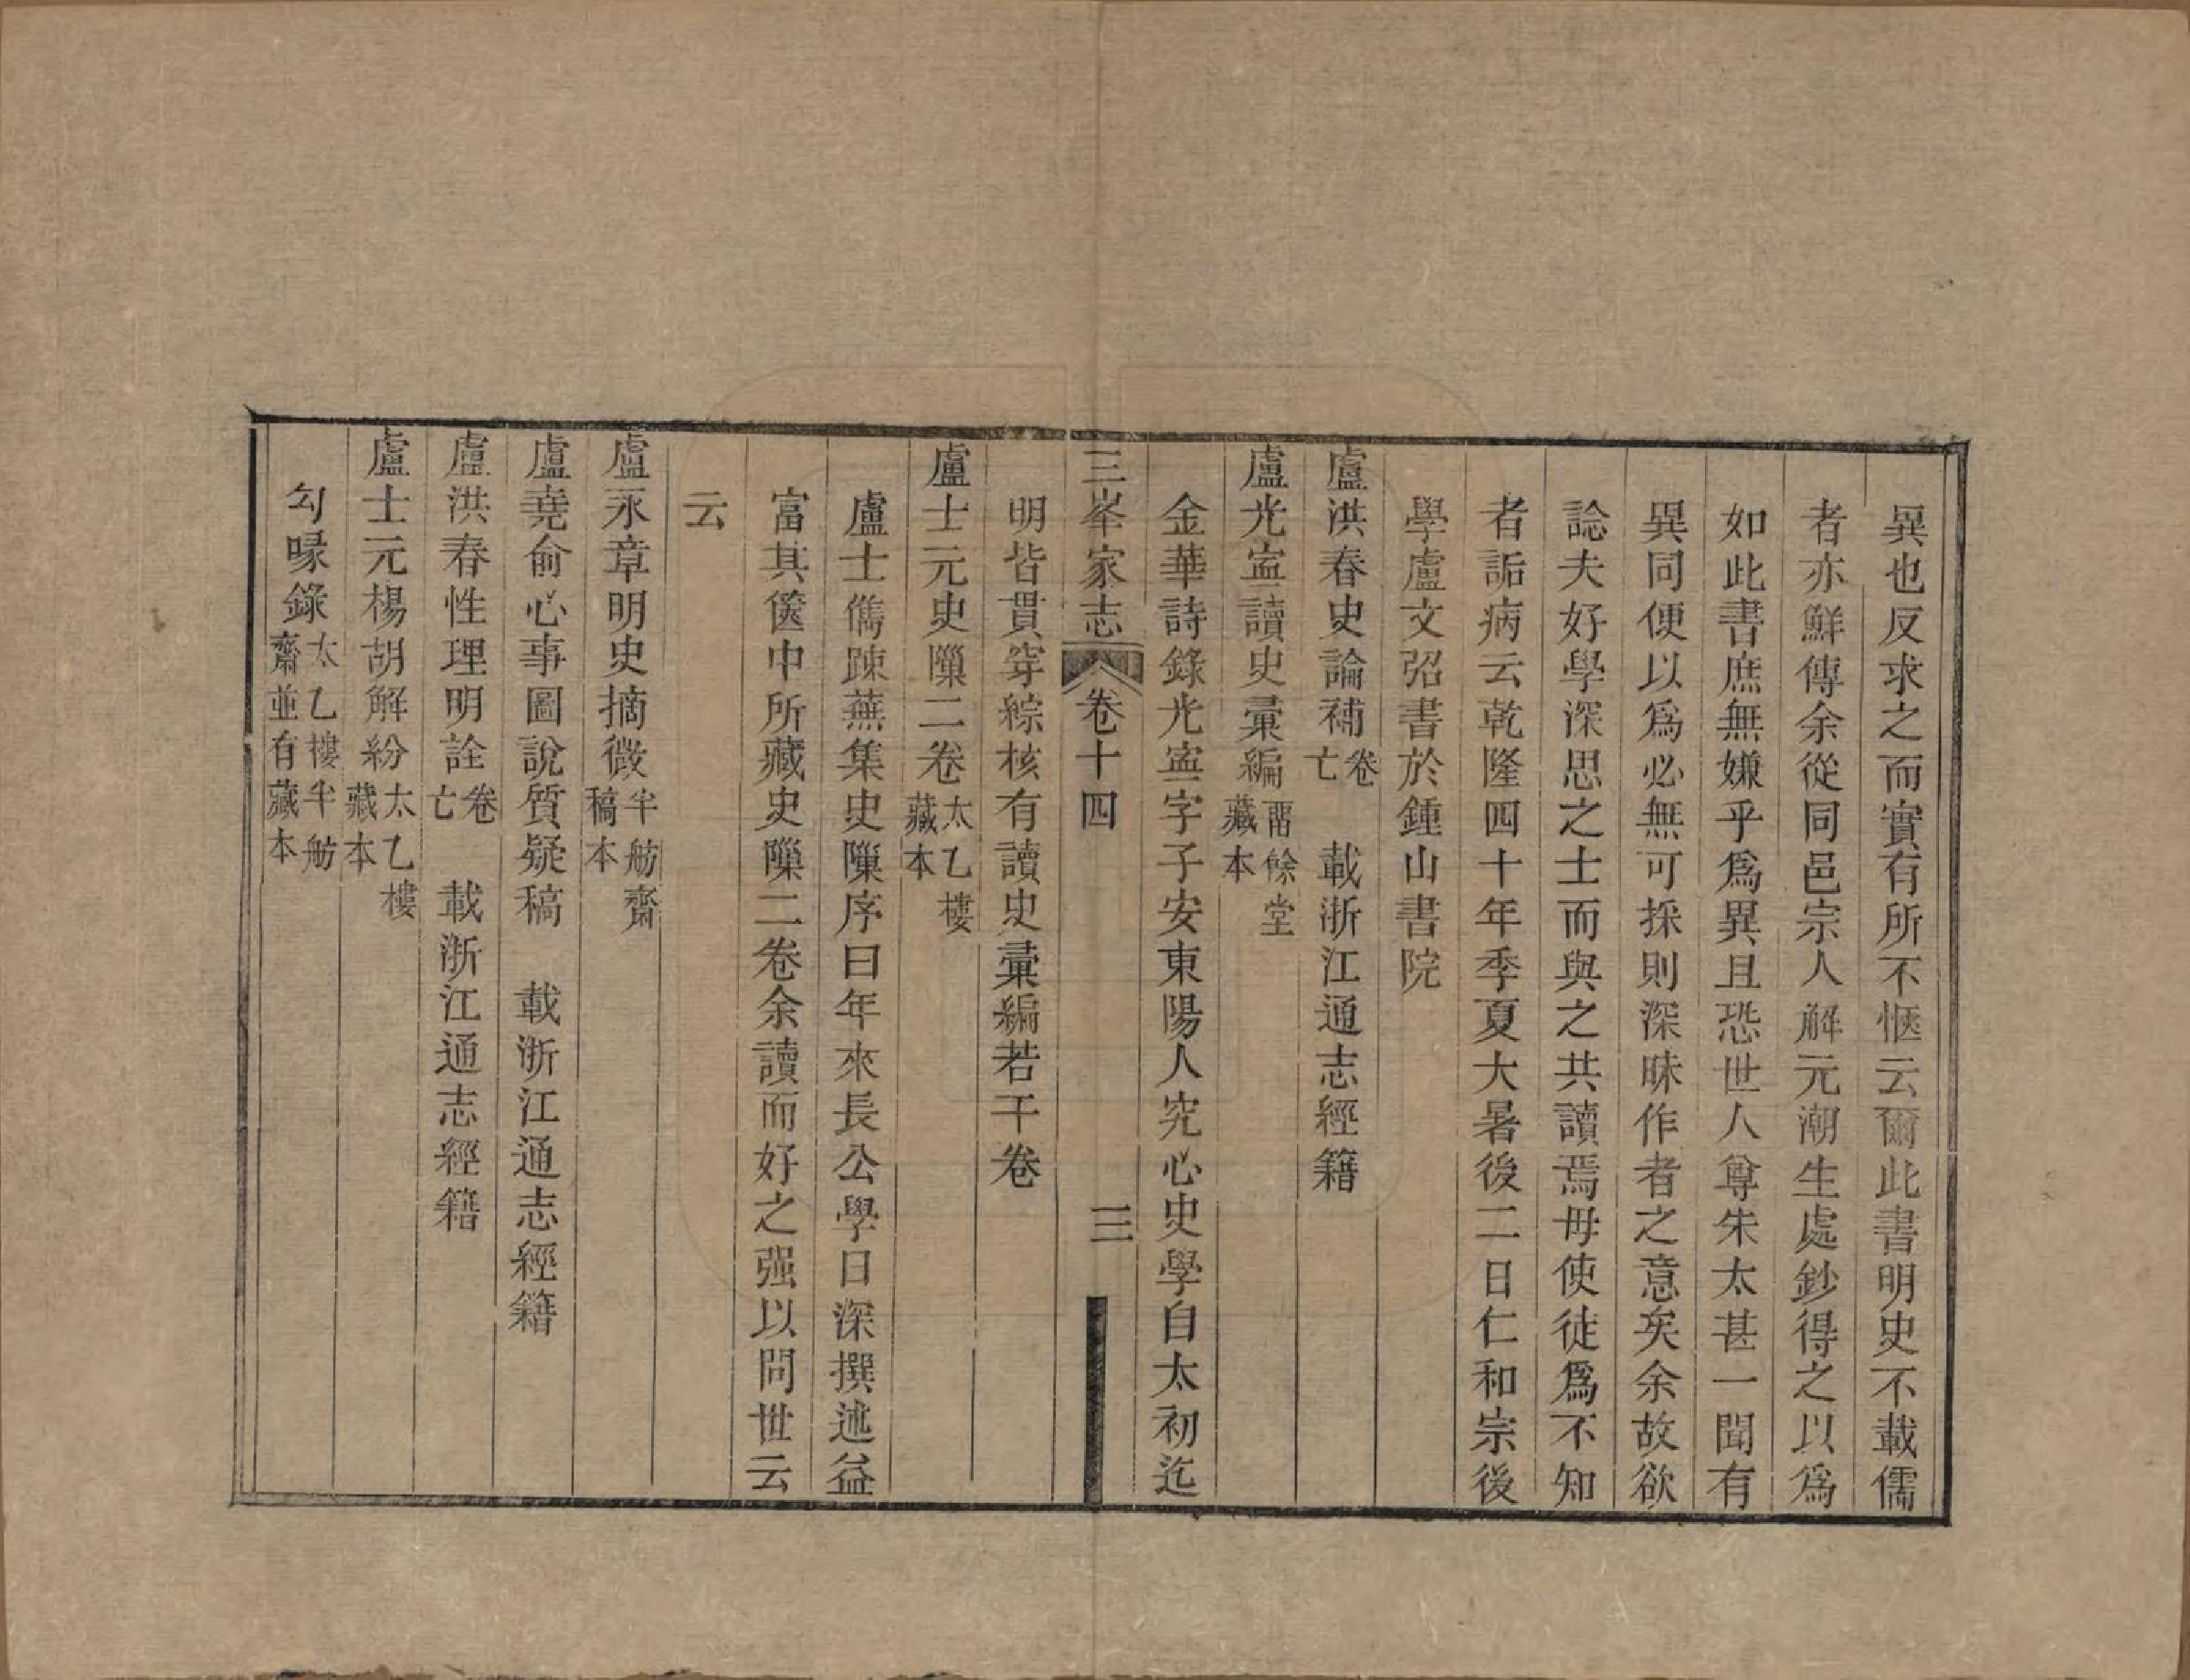 異也反求之而實有所不愜云爾此書明史不載儒
者亦鮮傳余從同邑宗人解元潮生處鈔得之以爲
如此書庶無嫌乎爲異且恐世人尊朱太甚一聞有
異同便以爲必無可採則深昧作者之意矣余故欲
諗夫好學深思之士而與之共讀焉毋使徒爲不知
者詬病云乾隆四十年季夏大暑後二日仁和宗後
學盧文弨書於鍾山書院
盧洪春史論補 卷亡 載浙江通志經籍
盧光𥁞讀史彙編 留餘堂藏本
金華詩錄光𥁞字子安東陽人究心史學自太初迄
三峯家志 卷十四 三
明皆貫穿綜核有讀史彙編若干卷
盧士元史隟二卷 太乙樓藏本
盧士儁踈蕪集史隟序曰年來長公學日深撰述益
富其篋中所藏史隟二卷余讀而好之强以問世云
云
盧永章明史摘微 半舫齋稿本
盧堯俞心事圖說質疑稿 載浙江通志經籍
盧洪春性理明詮 卷亡 載浙江通志經籍
盧士元楊胡解紛 太乙樓藏本
勾喙錄 太乙樓半舫齋並有藏本